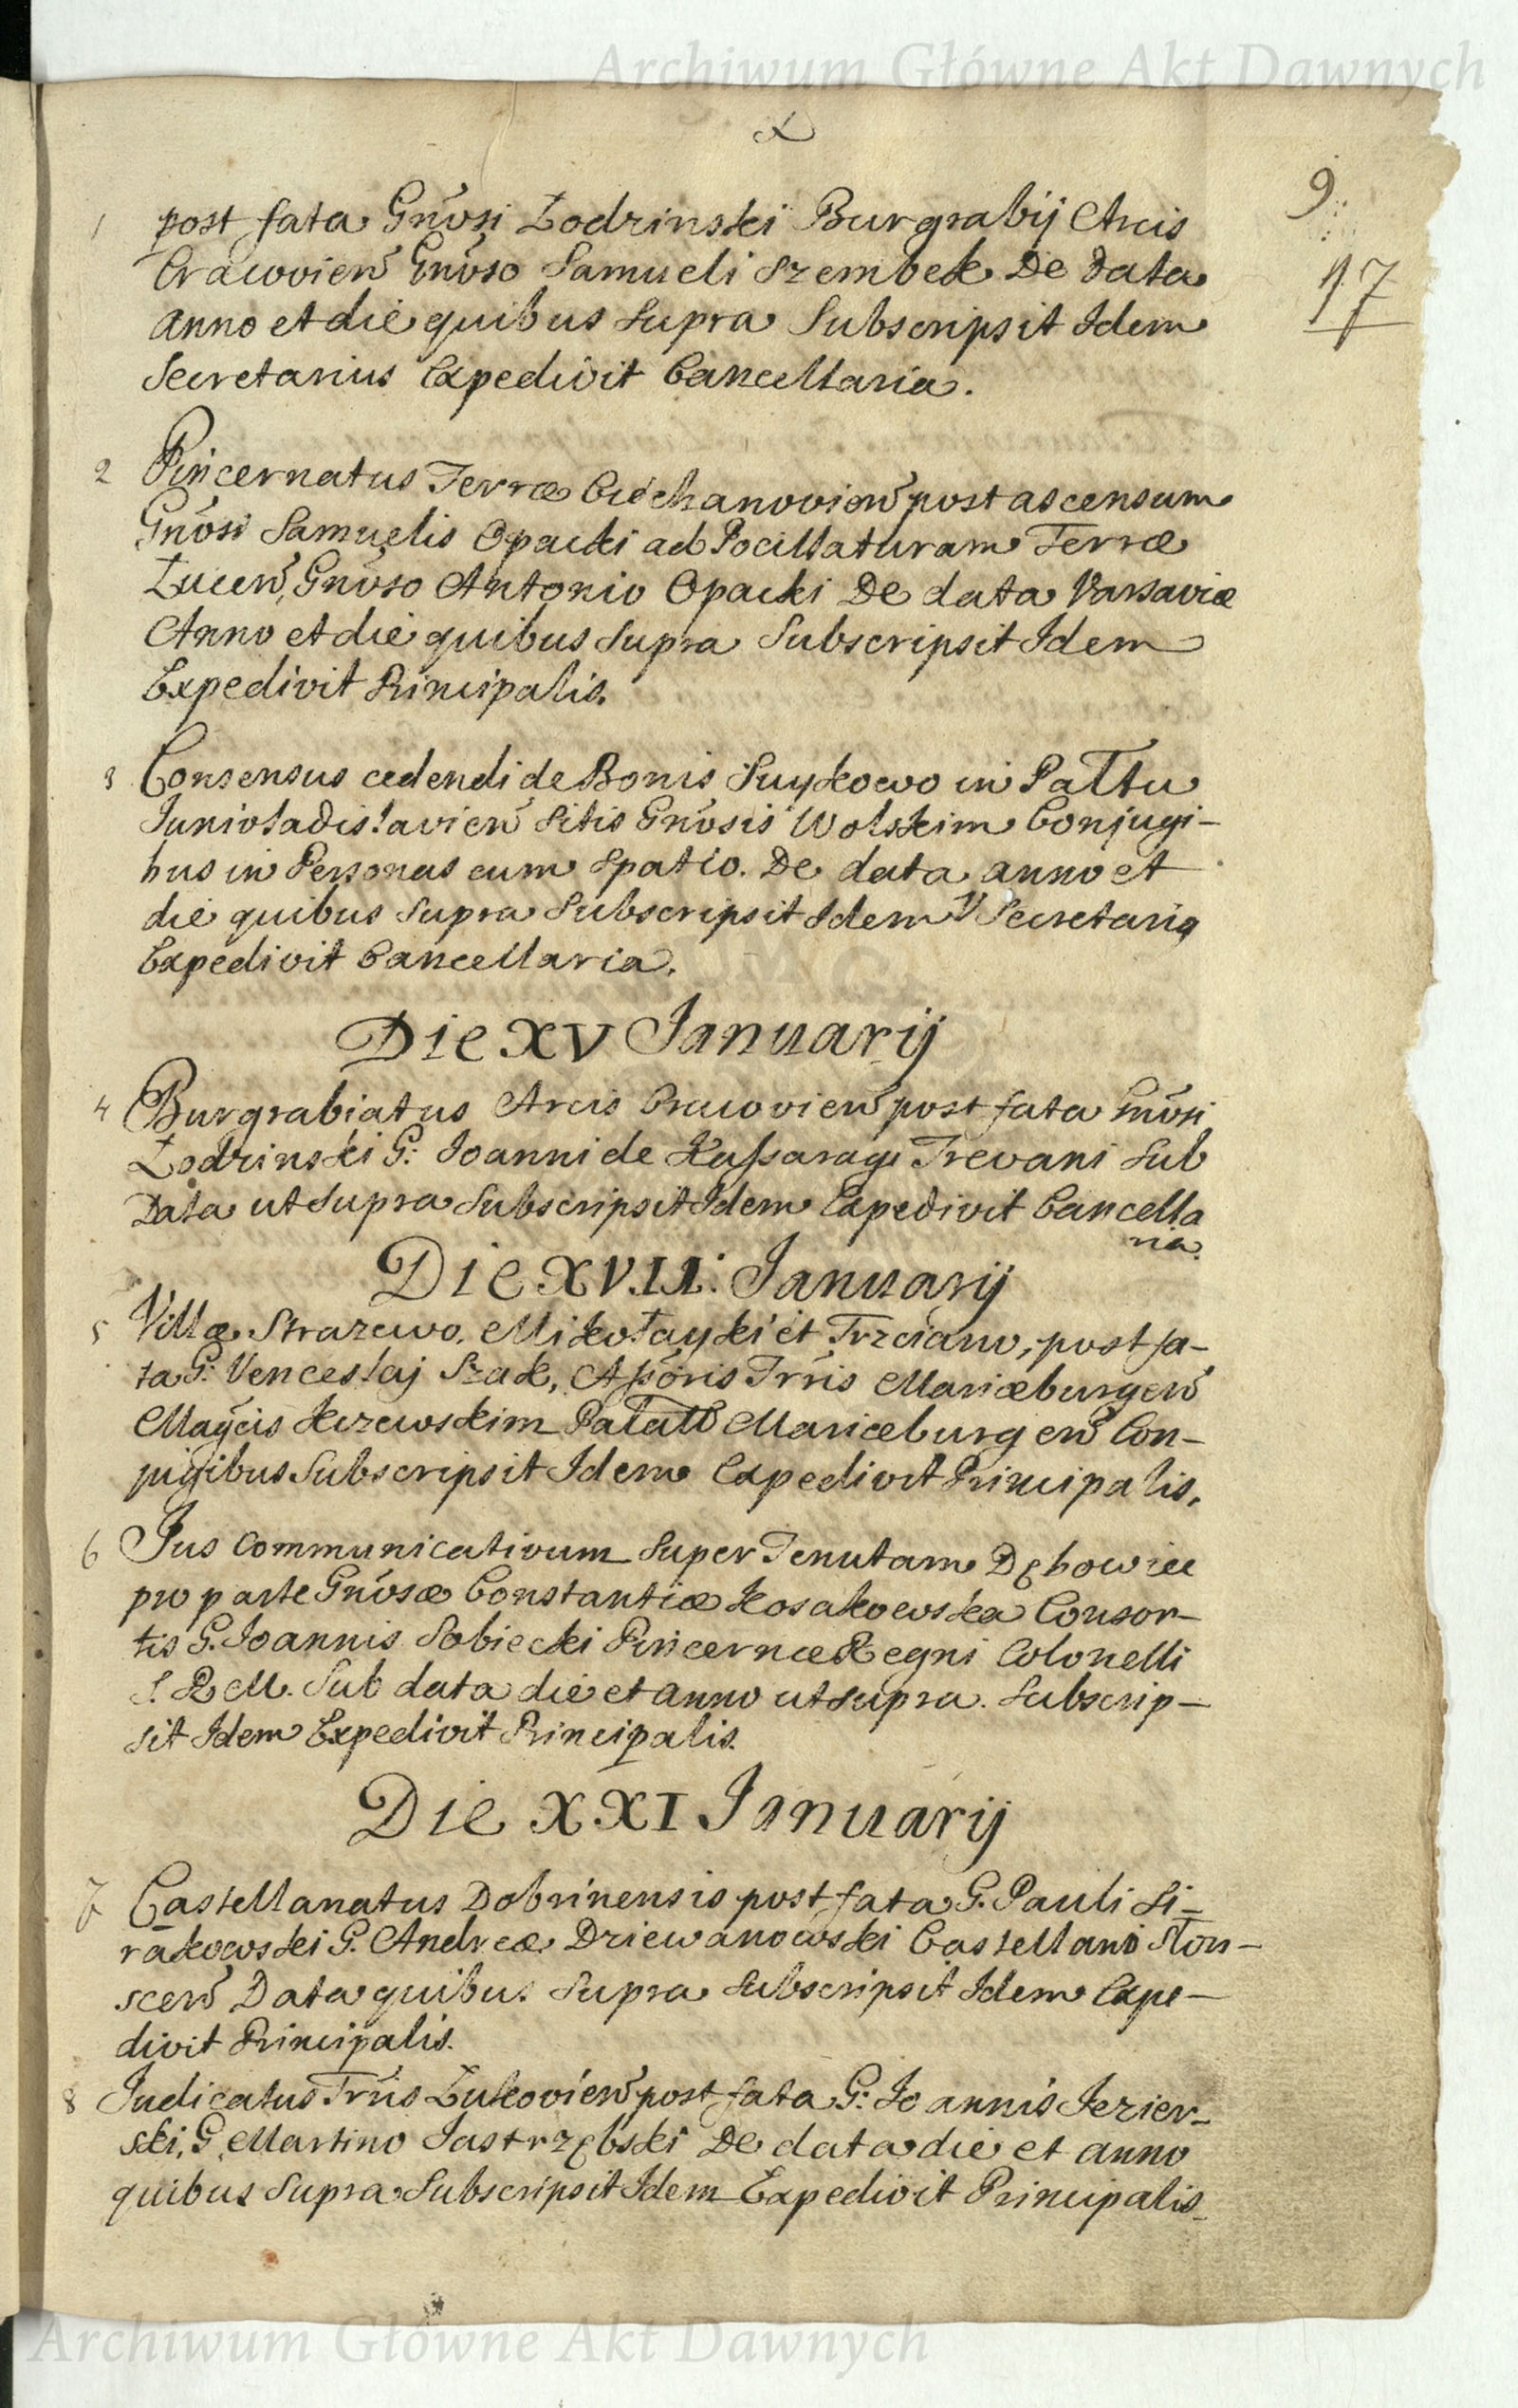 Archiwum Główne Akt Dawnych
9
17
1 post fata Gnosi Łodzinski Burgrabij Arcis
Cracovien Gnoso Samueli Szembek De Data
anno et die quibus supra Subscripsit Idem
Secretarius Expedivit Cancellaria.
2 Pincernatus Terræ Ciechanovien post ascensum
Gnosi Samuelis Opacki ad Pocillaturam Terræ
Łucen, Gnoso Antonio Opacki De data Varsaviæ
Anno et die quibus supra Subscripsit Idem
Expedivit Principalis.
3 Consensus cedendi de Bonis Suykowo in Pattu
Junivladislavien sitis Gnosis Wolskim Conjugi-
bus in Personas cum spatio. De data anno et
die quibus supra Subscripsit Idem Secretariq
Expedivit Cancellaria.
Die XV Januarij
4 Burgrabiatus Arcis Cracovien post fata Gnosi
Łodzinski G: Joanni de Trevani sub
Data ut supra Subscripsit Idem Expedivit Cancella
ria.
Die XVII: Januarij
5 Villæ Straszewo, Mikołayki et Trzciano, post fa-
ta G: Venceslaj Szak, Assoris Trris Mariæburgen
Magcis Kczewskim Palatt Mariæburgen Con-
jugibus Subscripsit Idem Expedivit Principalis.
6 Jus Communicativum super Tenutam Dębowiec
pro parte Gnosæ Constantiæ Kosakowska Consor-
tis G. Joannis Sobiecki Pincernæ Regni Colonelli
S. R. M. Sub data die et anno ut supra. Subscrip-
sit Idem Expedivit Principalis.
Die XXI Januarij
7 Castellanatus Dobrinensis post fata G. Pauli Si-
rakowski G. Andreæ Dziewanowski Castellano Slon-
scen Data quibus supra subscripsit Idem Expe-
divit Principalis.
8 Judicatus Trris Łukovien post fata G: Joannis Jezier-
ski, G. Martino Jastrzębski De data die et anno
quibus supra Subscripsit Idem Expedivit Principalis
Archiwum Główne Akt Dawnych